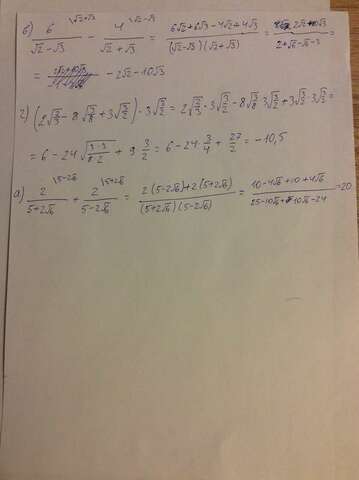 б) 6/(√2-√3) \√2+√3 - 4/(√2+√3) \√2-√3 = (6√2+6√3-4√2+4√3)/((√2-√3)(√2+√3)) = (2√2+10√3)/(2+√6-√6-3) =
= -2√2-10√3
г) (2√(2/3) - 8√(3/8) + 3√(3/2)) · 3√(3/2) = 2√(2/3) · 3√(3/2) - 8√(3/8) · 3√(3/2) + 3√(3/2) · 3√(3/2) =
= 6 - 24√((3·3)/(8·2)) + 9 3/2 = 6 - 24 · 3/4 + 27/2 = -10,5
а) 2/(5+2√6) \5-2√6 + 2/(5-2√6) \5+2√6 = (2(5-2√6)+2(5+2√6))/((5+2√6)(5-2√6)) = (10-4√6+10+4√6)/(25-10√6+10√6-24) = 20